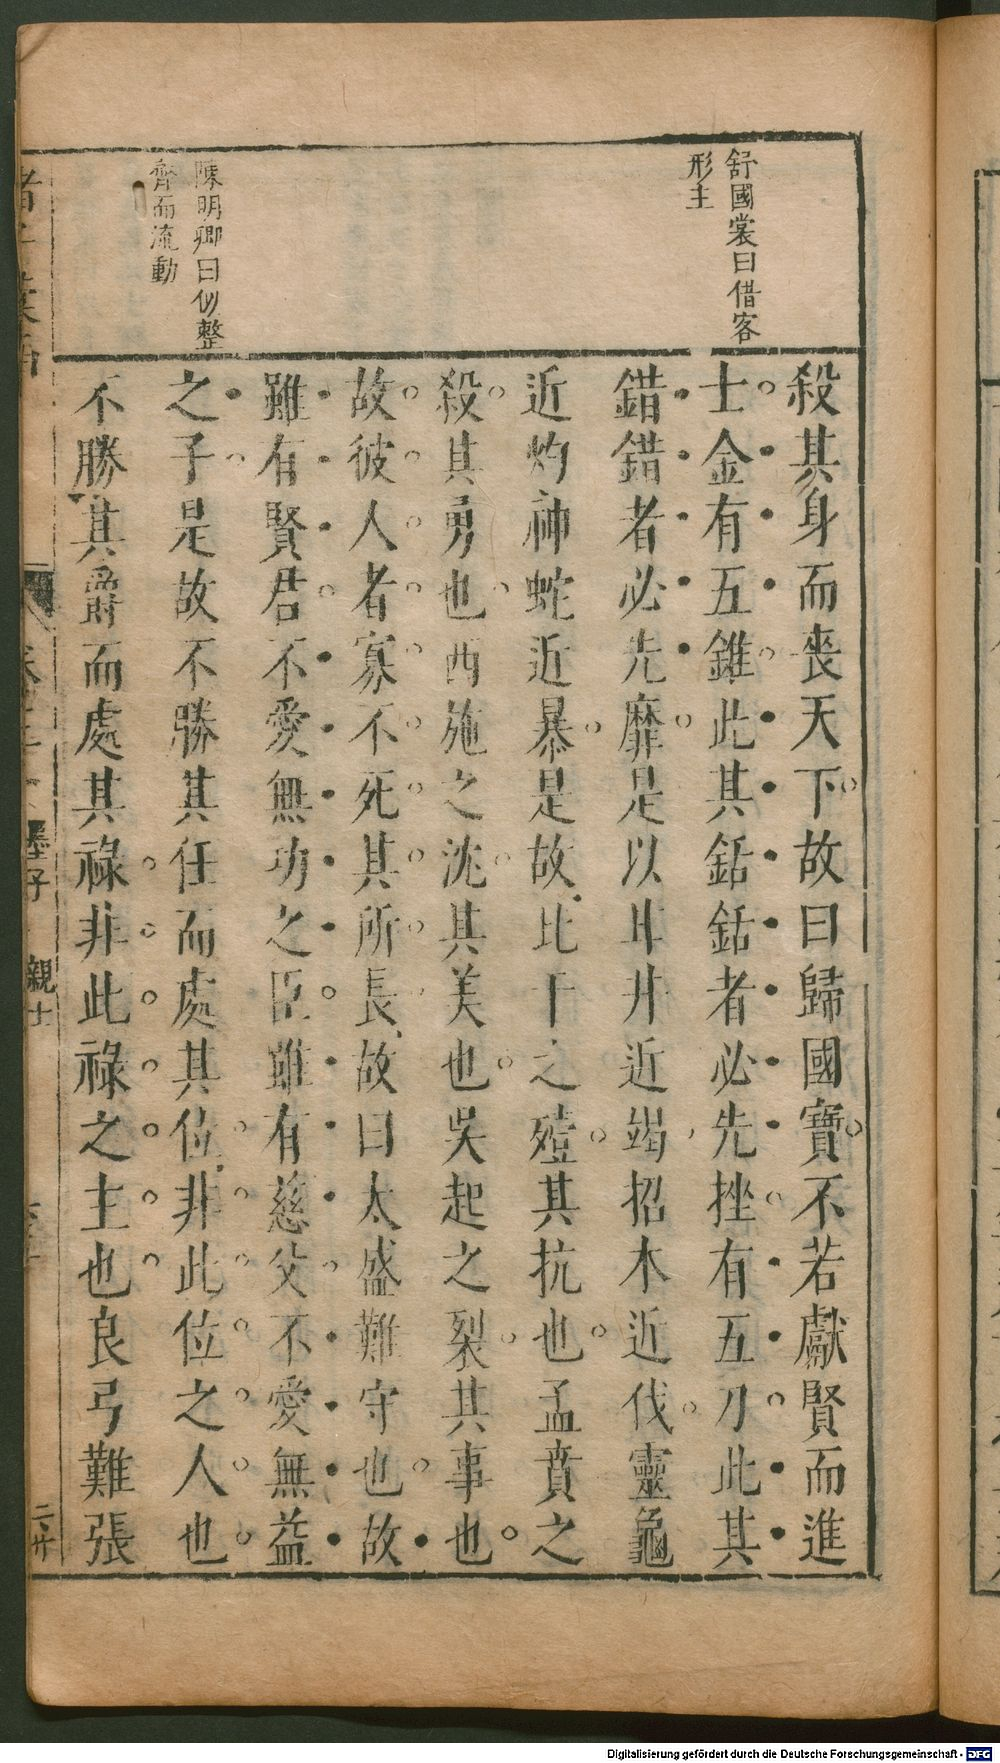 舒國裳曰借客
形主
陳明卿曰似整
齊而流動
殺其身而喪天下故曰歸國寶不若獻賢而進
士金有五錐此其銛銛者必先挫有五刀此其
錯錯者必先靡是以井井近竭招木近伐靈龜
近灼神蛇近暴是故比干之殪其抗也孟賁之
殺其勇也西施之沈其美也吳起之裂其事也
故彼人者寡不死其所長故曰太盛難守也故
雖有賢君不愛無功之臣雖有慈父不愛無益
之子是故不勝其任而處其位非此位之人也
不勝其爵而處其祿非此祿之主也良弓難張
墨子 親士
二廿
Digitalisierung gefördert durch die Deutsche Forschungsgemeinschaft - DFG